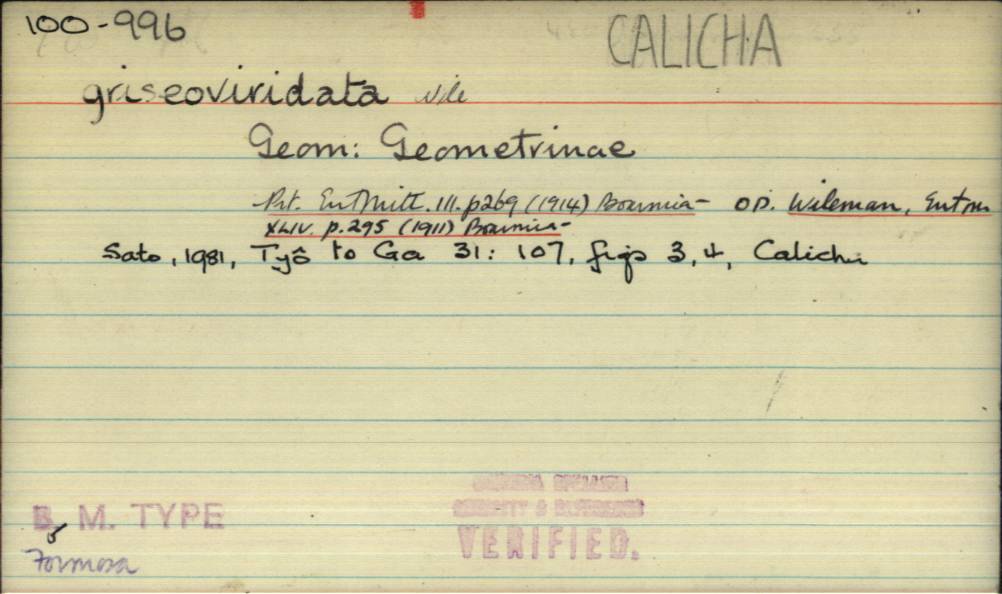 100-996
CALICHA
griseoviridata Wile
Geom: Geometrinae
Prt. Ent Mitt. III. p269 (1914) Boarmia- OD. Wileman, Entom
XLIV. p.295 (1911) Boarmia-
Sato, 1981, Tyô to Ga 31: 107, figs 3, 4, Calicha
B. M. TYPE
♂
Formosa
VERIFIED.